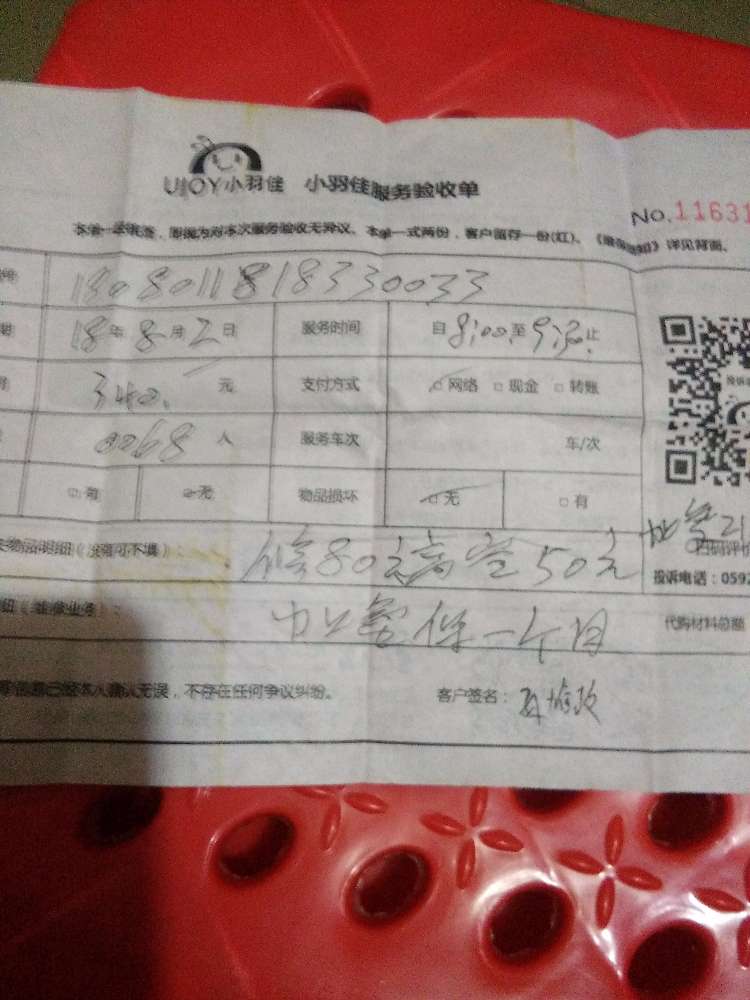 UJOY小羽佳 小羽佳服务验收单
No.11631
本单一经签署，即视为对本次服务验收无异议。本单一式两份，客户留存一份(红)。《服务须知》详见背面。
18080118183330033
18年8月2日 服务时间 自8:00至9:30止
340. 元 支付方式 □网络 □现金 □转账
0268 人 服务车次 车/次
□有 □无 物品损坏 □无 □有
物品明细（没有可不填）： 修80元高空50元 加氟
扫码评价
投诉电话：0592
（维修业务）： 加氟保一个月 代购材料总额
信息已经本人确认无误，不存在任何争议纠纷。 客户签名：